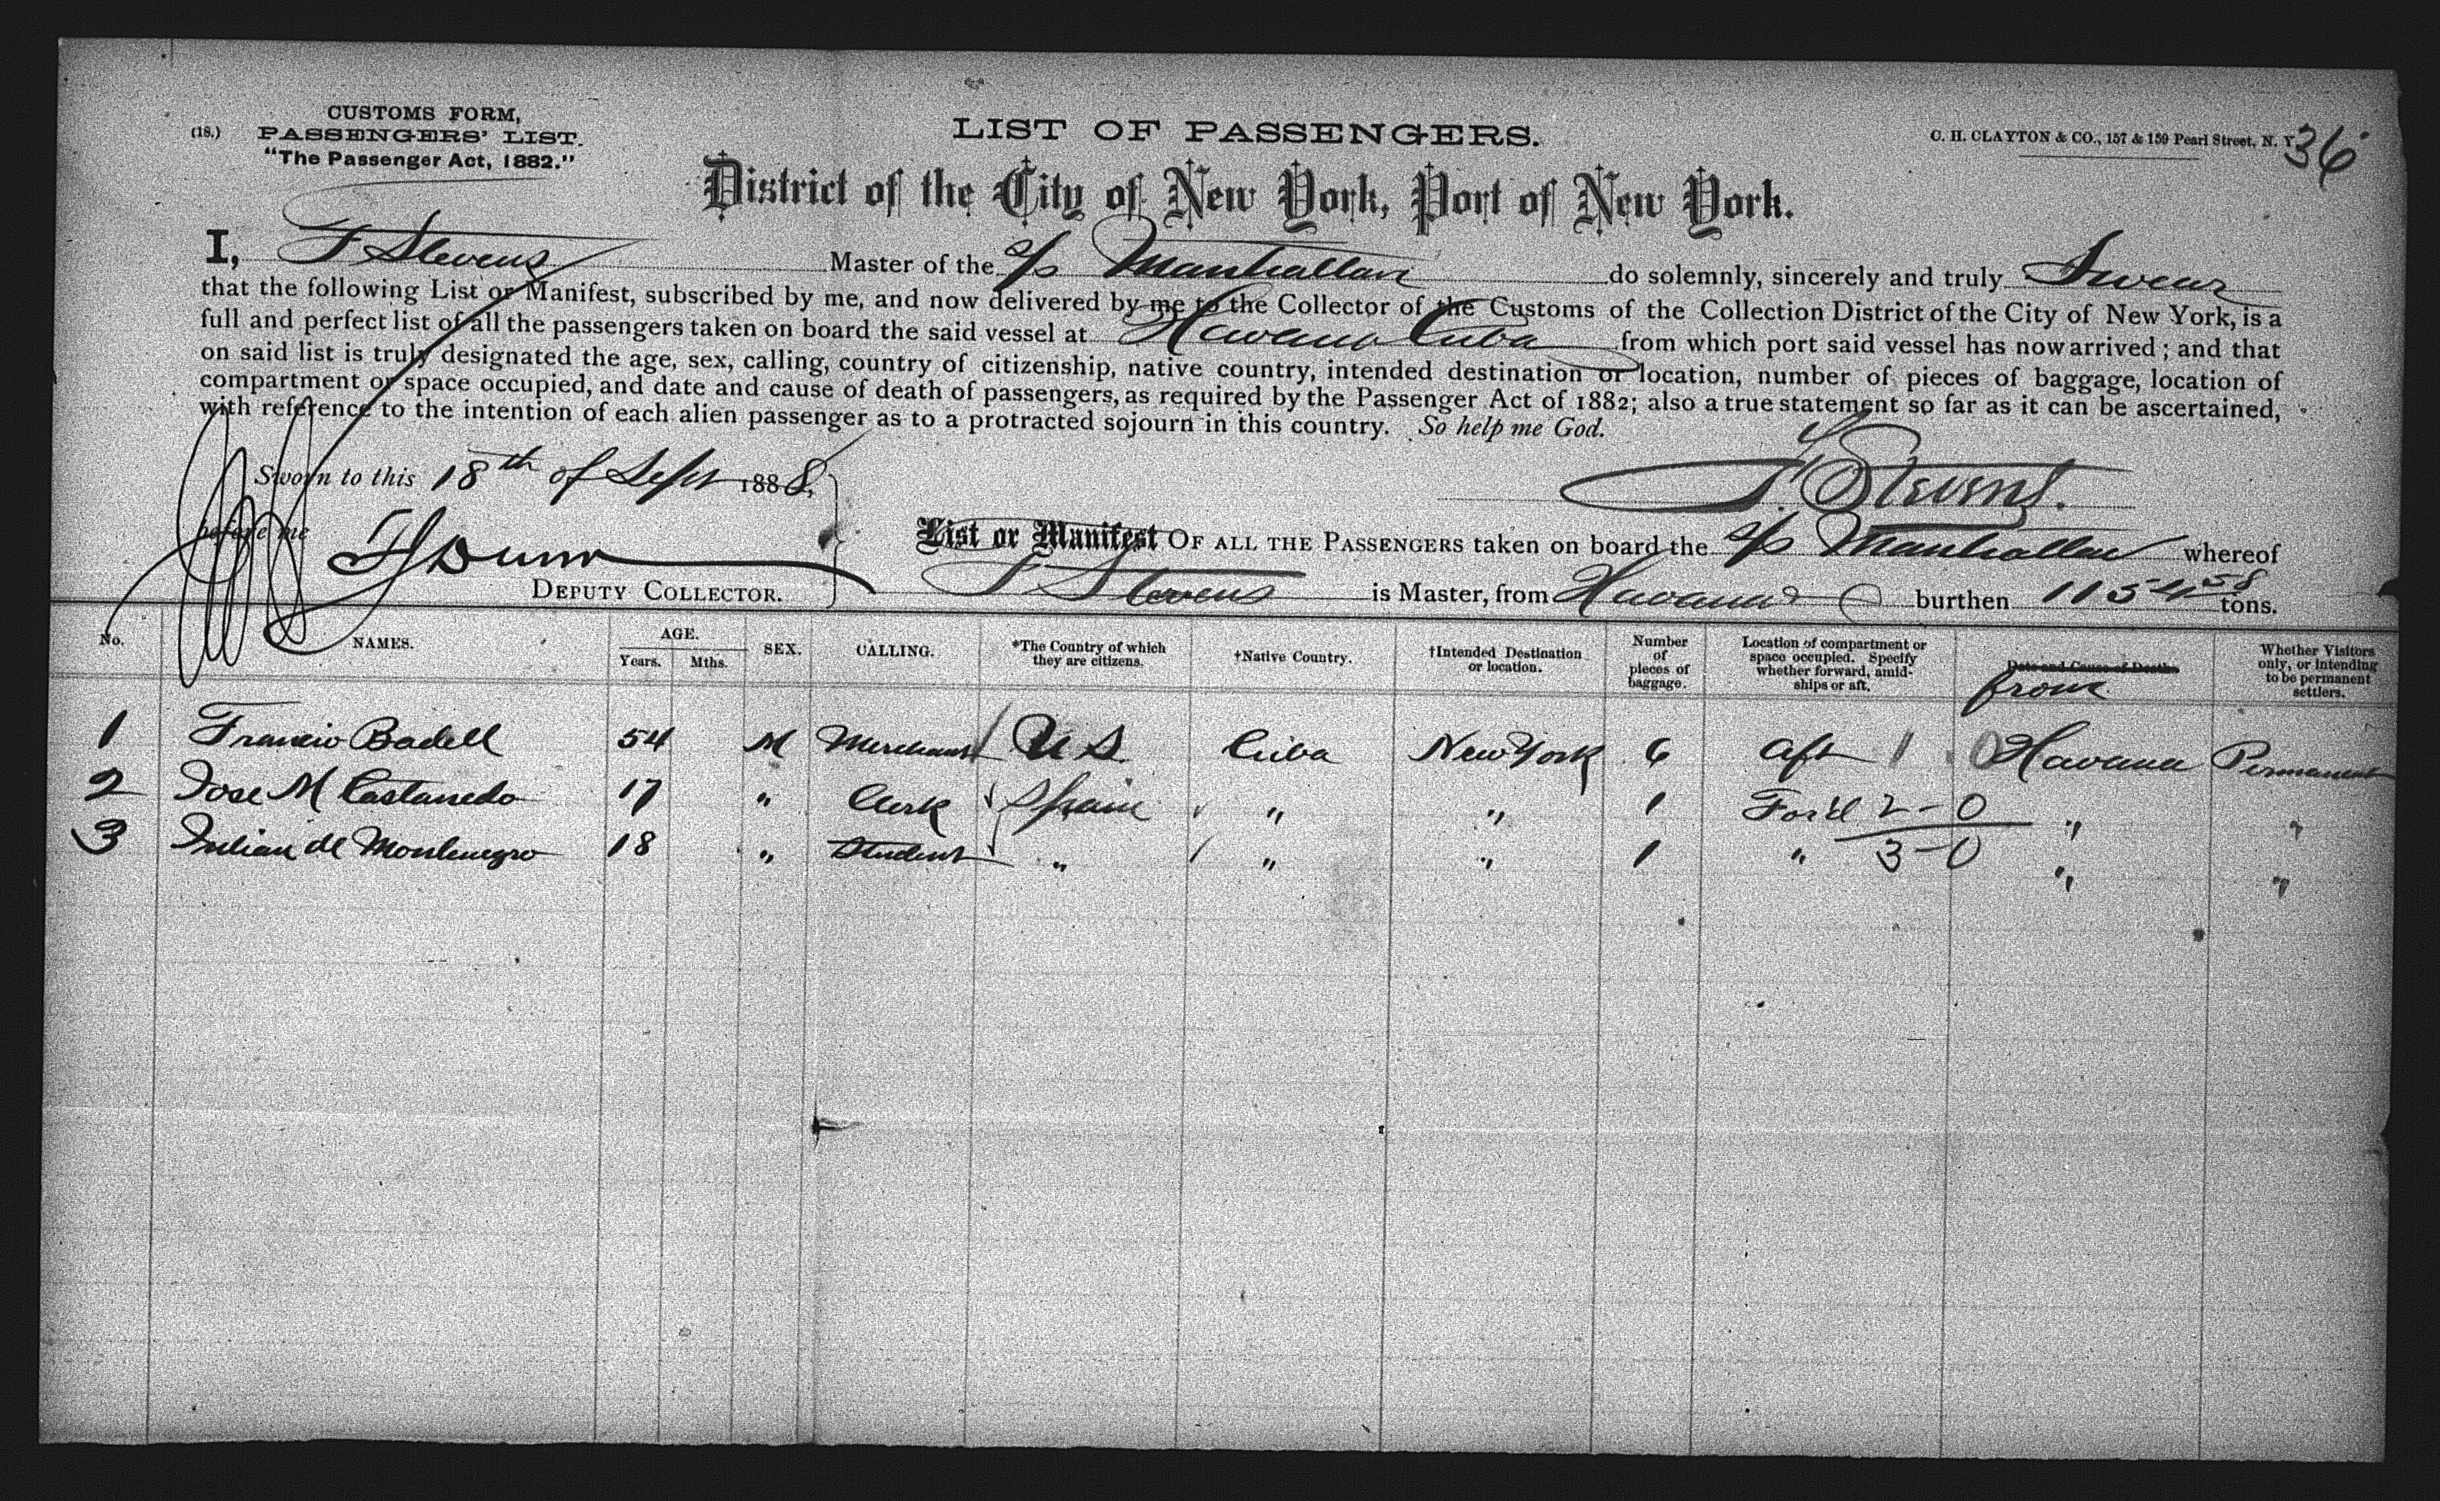 CUSTOMS FORM,
(18.) PASSENGERS' LIST.
"The Passenger Act, 1882."
LIST OF PASSENGERS.
C. H. CLAYTON & CO., 157 & 159 Pearl Street, N. Y.
36
District of the City of New York, Port of New York.
I, F Stevens Master of the S/S Manhattan do solemnly, sincerely and truly Swear
that the following List or Manifest, subscribed by me, and now delivered by me to the Collector of the Customs of the Collection District of the City of New York, is a
full and perfect list of all the passengers taken on board the said vessel at Havana Cuba from which port said vessel has now arrived; and that
on said list is truly designated the age, sex, calling, country of citizenship, native country, intended destination or location, number of pieces of baggage, location of
compartment or space occupied, and date and cause of death of passengers, as required by the Passenger Act of 1882; also a true statement so far as it can be ascertained,
with reference to the intention of each alien passenger as to a protracted sojourn in this country. So help me God.
Sworn to this 18th of Sept 1888,
F. Stevens.
before me
Dunn
DEPUTY COLLECTOR.
List or Manifest OF ALL THE PASSENGERS taken on board the S/S Manhattan whereof
F Stevens is Master, from Havana burthen 1154 58 tons.
No. NAMES. AGE. Years. Mths. SEX. CALLING. *The Country of which they are citizens. †Native Country. †Intended Destination or location. Number of pieces of baggage. Location of compartment or space occupied. Specify whether forward, amidships or aft. Date and Cause of Death. from Whether Visitors only, or intending to be permanent settlers.
1 Francio Badell 54 M Merchant U S. Cuba New York 6 Aft 1 0 Havana Permanent
2 Jose M Castanedo 17 " Clerk Spain " " 1 For'd 2-0 " "
3 Julian de Montenegro 18 " Student " " " 1 " 3-0 " "